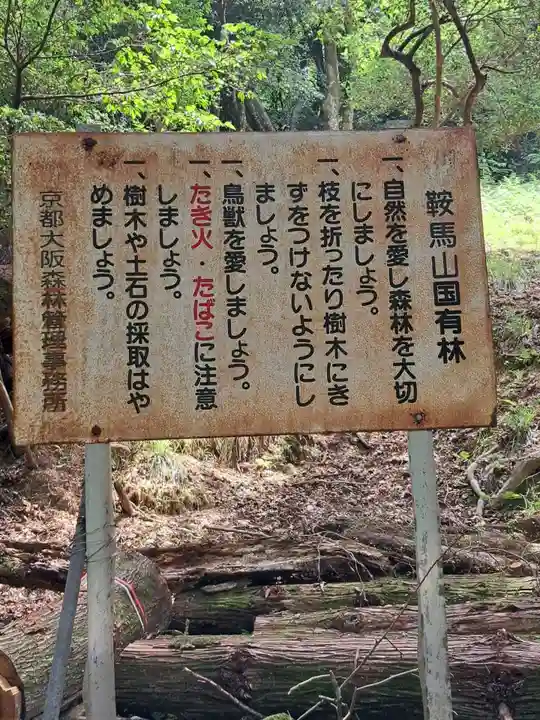 鞍馬山国有林
一、自然を愛し森林を大切
にしましょう。
一、枝を折ったり樹木にき
ずをつけないようにし
ましょう。
一、鳥獣を愛しましょう。
一、たき火・たばこに注意
しましょう。
一、樹木や土石の採取はや
めましょう。
京都大阪森林管理事務所